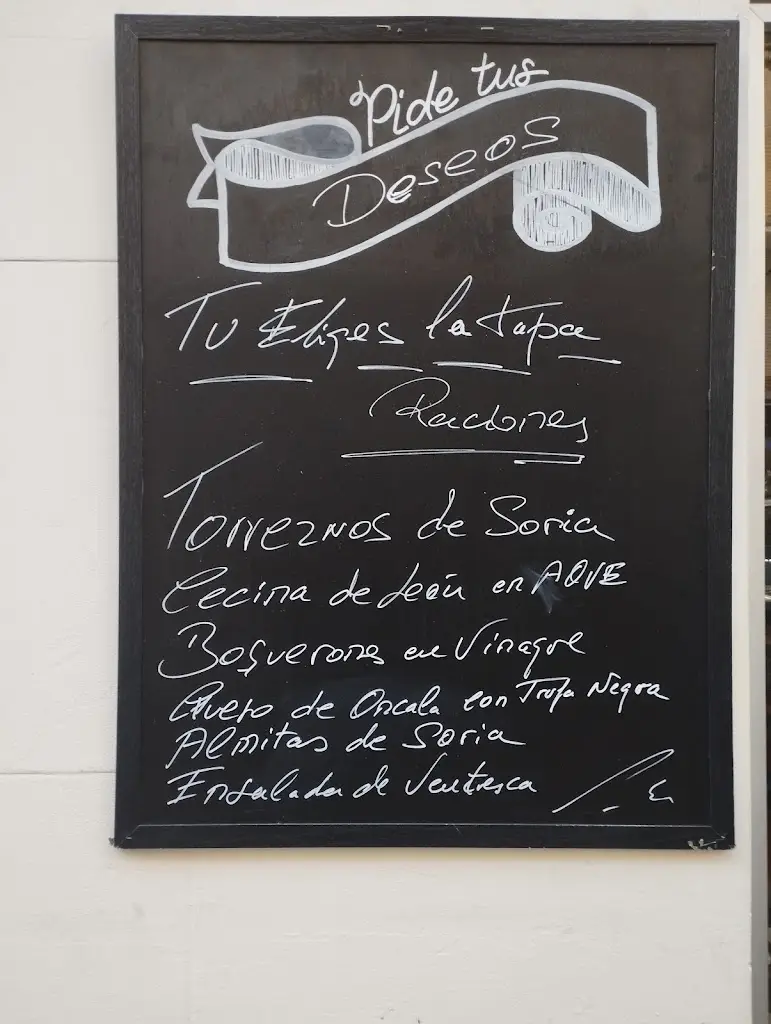 Pide tus
Deseos
Tu Eliges la tapa
Raciones
Torreznos de Soria
Cecina de León en AOVE
Boquerones en Vinagre
Queso de Oncala con Trufa Negra
Almitas de Soria
Ensalada de Ventresca